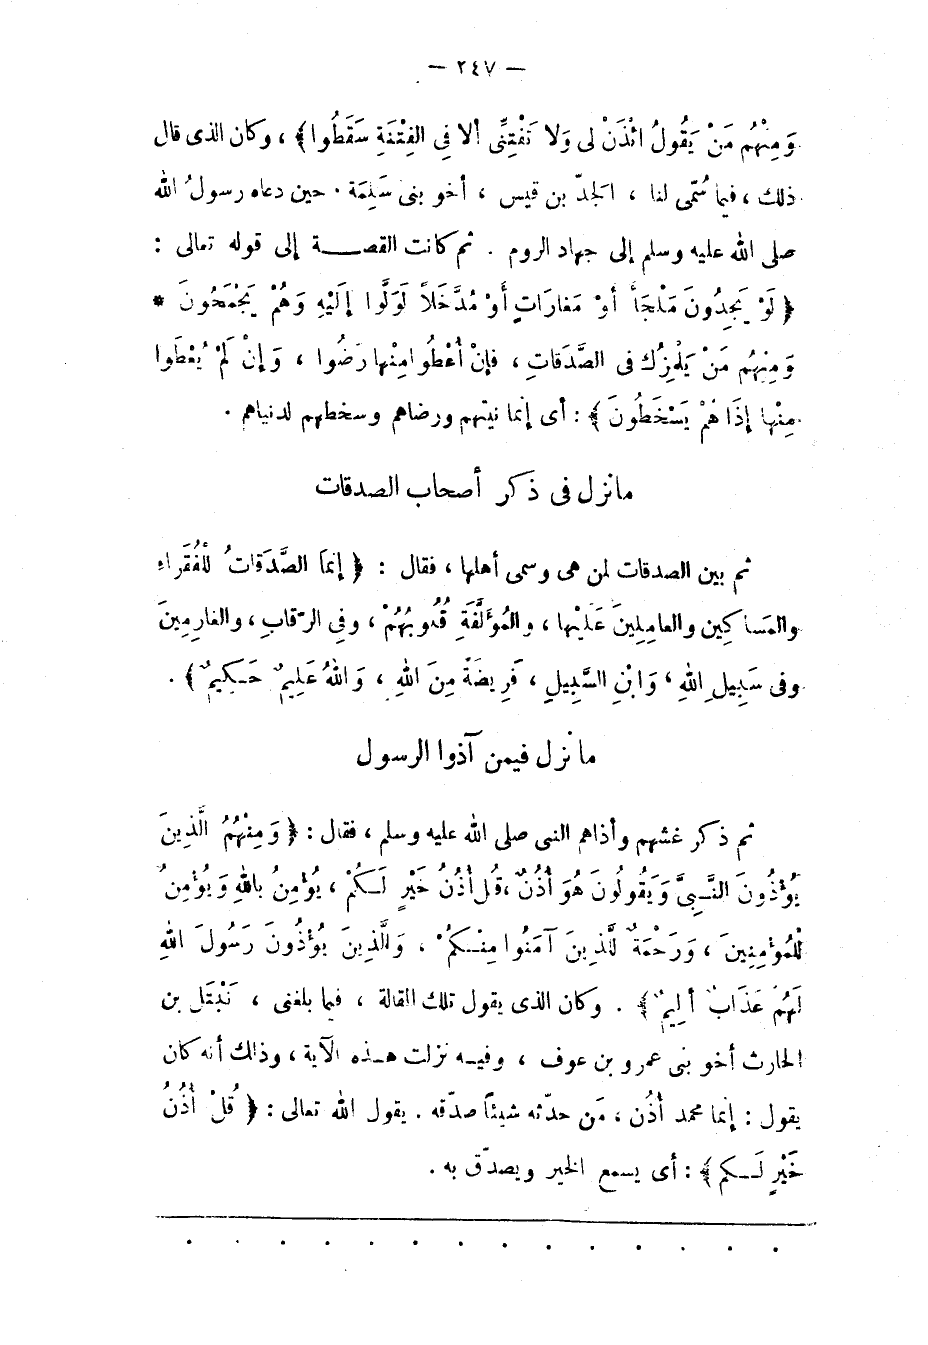 — ٢٤٧ —
وَمِنْهُم مَنْ يَقُولُ ائْذَنْ لى وَلا تَفْتِنِّى ألا فِى الفِتْنَةِ سَقَطُوا﴾ ، وكان الذى قال
ذلك ، فيما سُمّى لنا ، الجدّ بن قيس ، أخو بنى سَلِمَة . حين دعاه رسولُ الله
صلى الله عليه وسلم إلى جهاد الروم . ثم كانت القصة إلى قوله تعالى :
﴿ لَوْ يَجِدُونَ مَلْجَأً أوْ مَغارَاتٍ أَوْ مُدَّخَلاً لَوَلَّوا إلَيْهِ وَهُمْ يَجْمَحُونَ *
وَمِنْهُم مَنْ يَلْمِزُكَ فى الصَّدَقاتِ ، فإنْ أُعْطُوا مِنْها رَضُوا ، وَإنْ لَمْ يُعْطَوا
مِنْها إذَا هُمْ يَسْخَطُونَ ﴾ : أى إنما نيتهم ورضاهم وسخطهم لدنياهم .
ما نزل فى ذكر أصحاب الصدقات
ثم بين الصدقات لمن هى وسمى أهلها ، فقال : ﴿ إنمَا الصَّدَقاتُ للْفُقَرَاءِ
والمَساكِين والعامِلِينَ عَلَيْها ، والمُؤَلَّفَةِ قُلُوبُهُمْ ، وفى الرّقابِ ، والغارِمِينَ
وفى سَبِيلِ اللهِ ، وَابْنِ السَّبِيلِ ، فَرِيضَةً مِنَ اللهِ ، وَاللهُ عَلِيمٌ حَكِيمٌ ﴾ .
ما نزل فيمن آذوا الرسول
ثم ذكر غشهم وأذاهم النبى صلى الله عليه وسلم ، فقال : ﴿ وَمِنْهُمُ الَّذِينَ
يُؤْذُونَ النَّبِىَّ وَيَقُولُونَ هُوَ أُذُنٌ ، قُل أُذُنُ خَيْرٍ لَكُمْ ، يُؤْمِنُ باللهِ وَيُؤْمِنُ
لْلمُؤمِنِينَ ، وَرَحْمَةٌ للَّذِينَ آمَنُوا مِنْكُمْ ، وَالَّذِينَ يُؤْذُونَ رَسُولَ اللهِ
لَهُمْ عَذَابٌ ألِيمٌ ﴾ . وكان الذى يقول تلك القالة ، فيما بلغنى ، نَبْتَل بن
الحارث أخو بنى عمرو بن عوف ، وفيه نزلت هذه الآية ، وذلك أنه كان
يقول : إنما محمد أذُن ، مَن حدّثه شيئاً صدّقه . يقول الله تعالى : ﴿ قُلْ أُذُنُ
خَيْرٍ لَكم ﴾ : أى يسمع الخير ويصدّق به .
. . . . . . . . . . . . . .